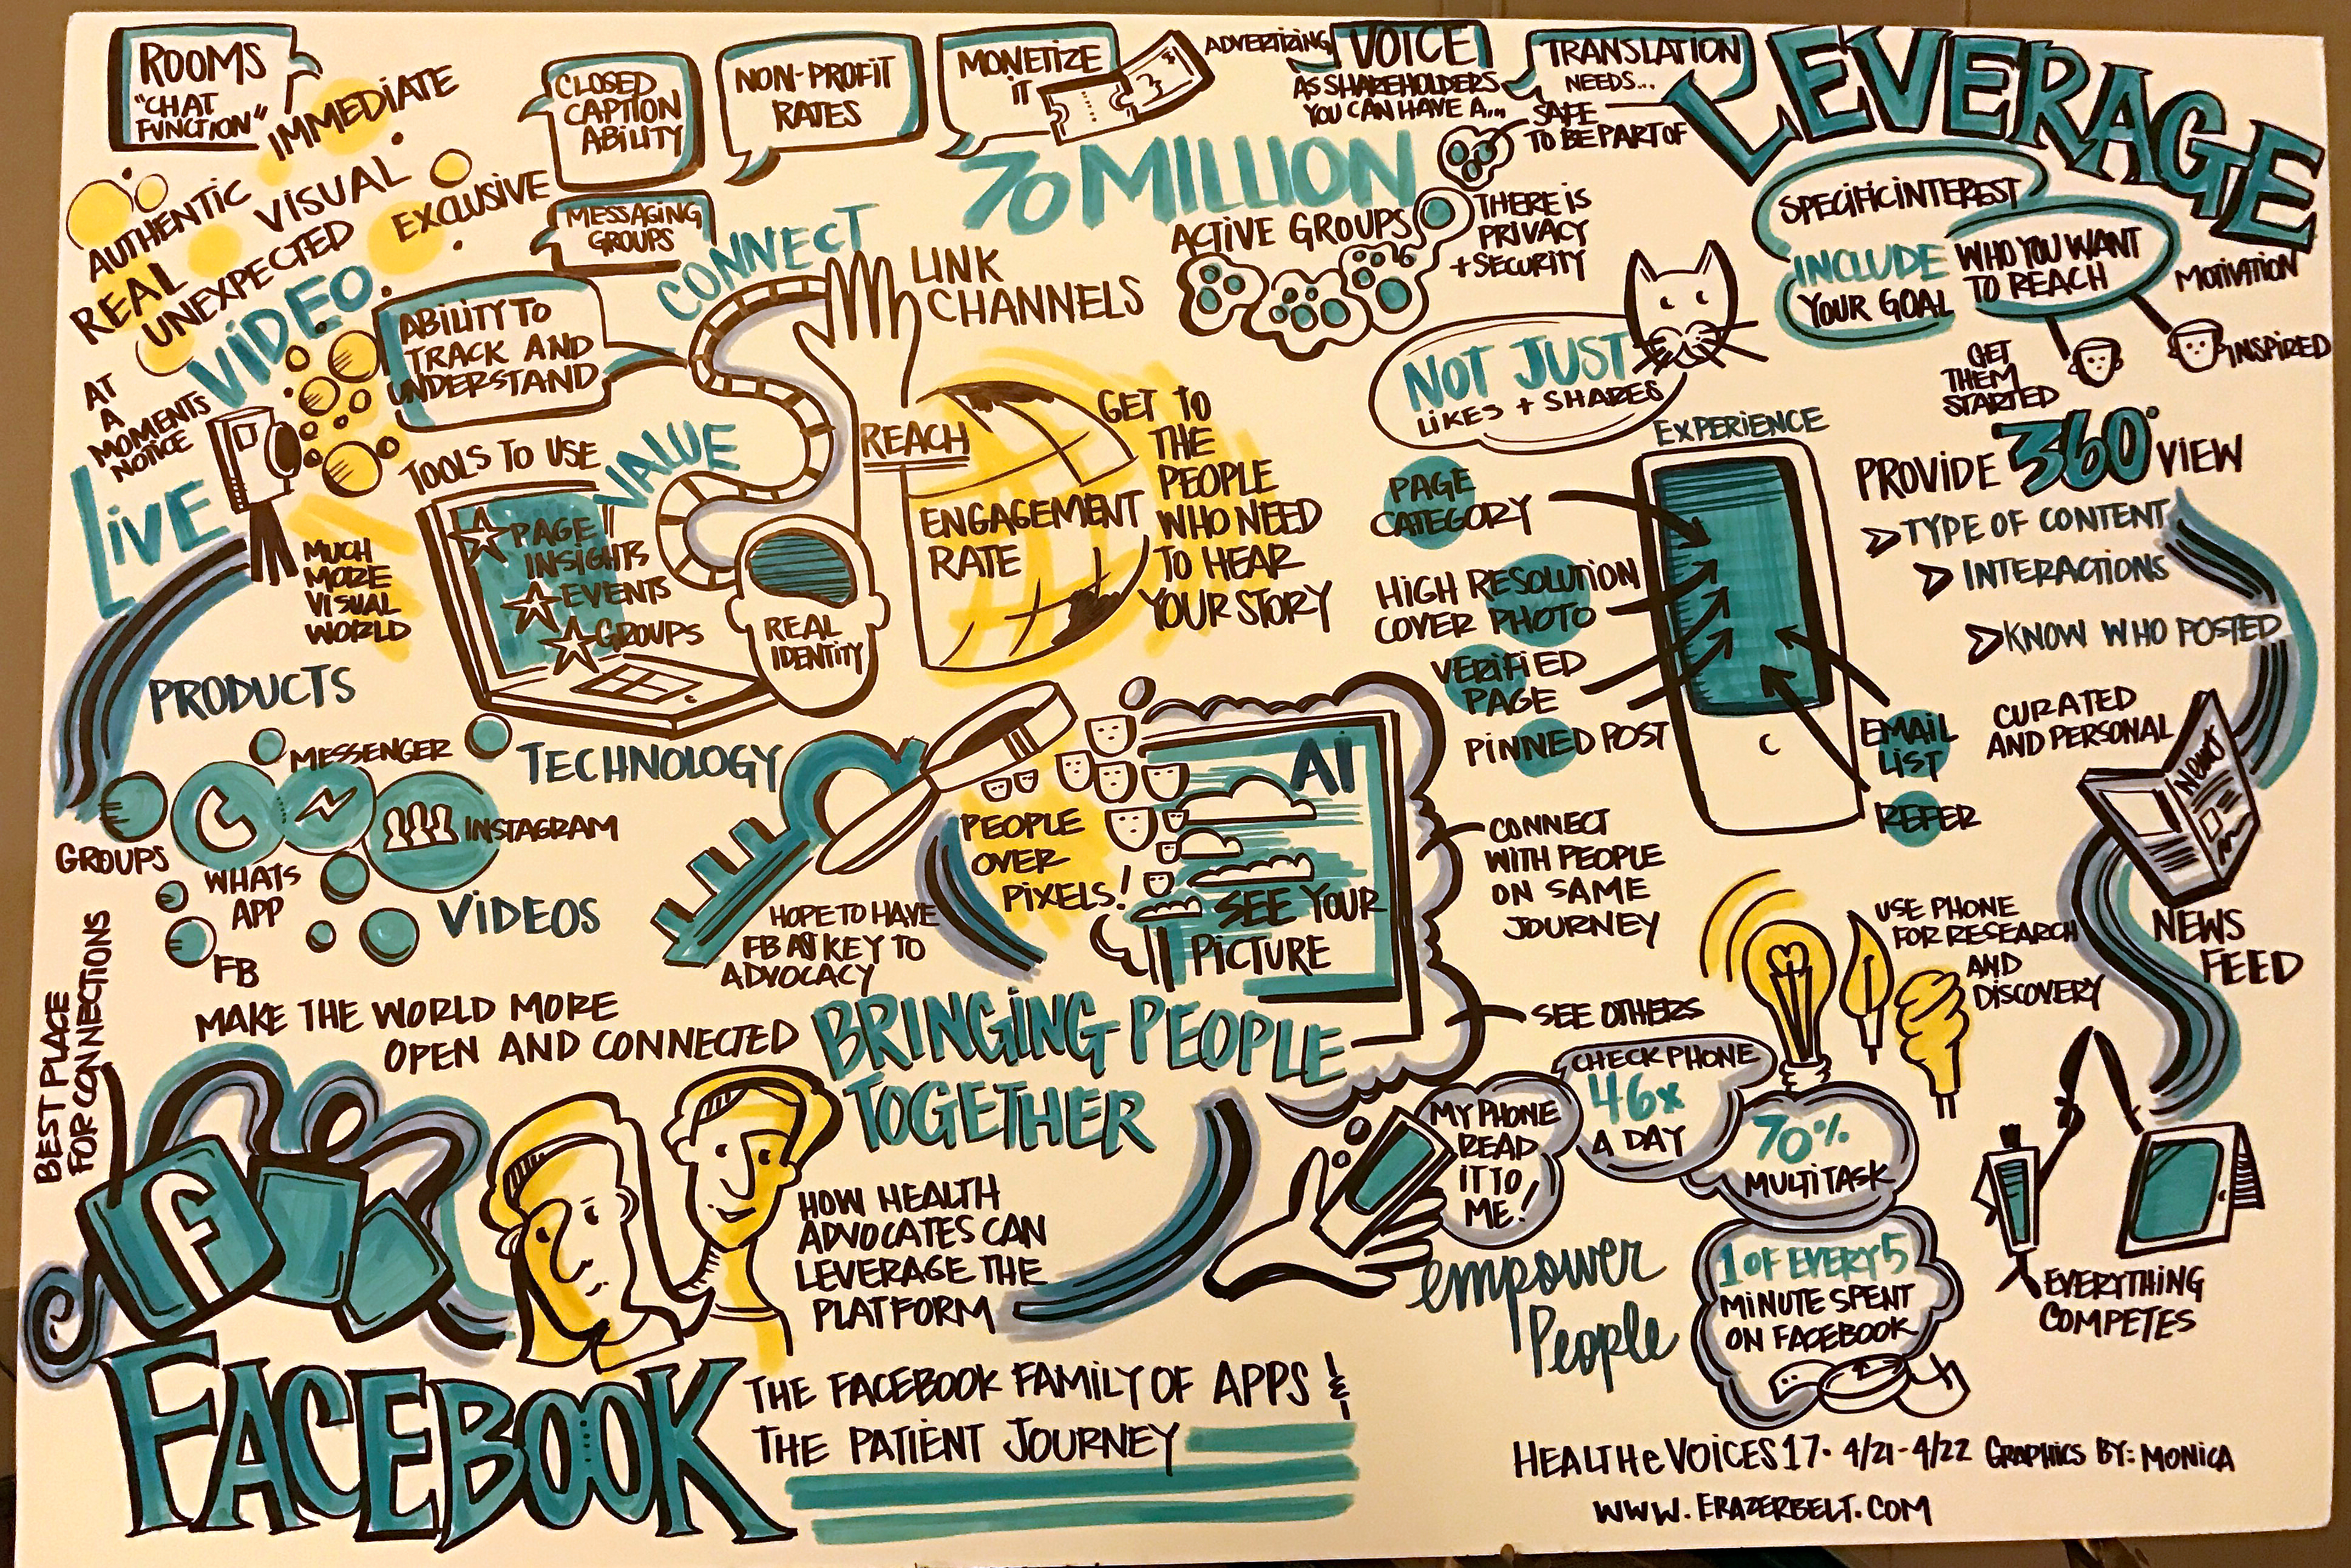 ROOMS
"CHAT
FUNCTION"
IMMEDIATE
AUTHENTIC
VISUAL
REAL
UNEXPECTED
EXCLUSIVE
VIDEO
AT
A
MOMENTS
NOTICE
LIVE
MUCH
MORE
VISUAL
WORLD
CLOSED
CAPTION
ABILITY
MESSAGING
GROUPS
NON-PROFIT
RATES
MONETIZE
IT
ADVERTIZING
VOICE
AS SHAREHOLDERS
YOU CAN HAVE A...
TRANSLATION
NEEDS...
SAFE
TO BE PART OF
LEVERAGE
70 MILLION
ACTIVE GROUPS
THERE IS
PRIVACY
+ SECURITY
SPECIFIC INTEREST
INCLUDE
YOUR GOAL
WHO YOU WANT
TO REACH
MOTIVATION
INSPIRED
GET
THEM
STARTED
ABILITY TO
TRACK AND
UNDERSTAND
CONNECT
LINK
CHANNELS
TOOLS TO USE
VALUE
PAGE
INSIGHTS
EVENTS
GROUPS
REAL
IDENTITY
REACH
ENGAGEMENT
RATE
GET TO
THE
PEOPLE
WHO NEED
TO HEAR
YOUR STORY
NOT JUST
LIKES + SHARES
EXPERIENCE
PAGE
CATEGORY
HIGH RESOLUTION
COVER PHOTO
VERIFIED
PAGE
PINNED POST
EMAIL
LIST
REFER
PROVIDE 360° VIEW
TYPE OF CONTENT
INTERACTIONS
KNOW WHO POSTED
CURATED
AND PERSONAL
NEWS
NEWS
FEED
PRODUCTS
MESSENGER
GROUPS
WHATS
APP
INSTAGRAM
FB
TECHNOLOGY
VIDEOS
HOPE TO HAVE
FB AS KEY TO
ADVOCACY
PEOPLE
OVER
PIXELS!
AI
SEE YOUR
PICTURE
CONNECT
WITH PEOPLE
ON SAME
JOURNEY
SEE OTHERS
USE PHONE
FOR RESEARCH
AND
DISCOVERY
BEST PLACE
FOR CONNECTIONS
MAKE THE WORLD MORE
OPEN AND CONNECTED
BRINGING PEOPLE
TOGETHER
HOW HEALTH
ADVOCATES CAN
LEVERAGE THE
PLATFORM
MY PHONE
READ
IT TO
ME!
CHECK PHONE
46x
A DAY
70%
MULTITASK
1 OF EVERY 5
MINUTE SPENT
ON FACEBOOK
empower
People
EVERYTHING
COMPETES
f
FACEBOOK
THE FACEBOOK FAMILY OF APPS &
THE PATIENT JOURNEY
HEALTHeVOICES17 · 4/21-4/22 GRAPHICS BY: MONICA
WWW.ERAZERBELT.COM